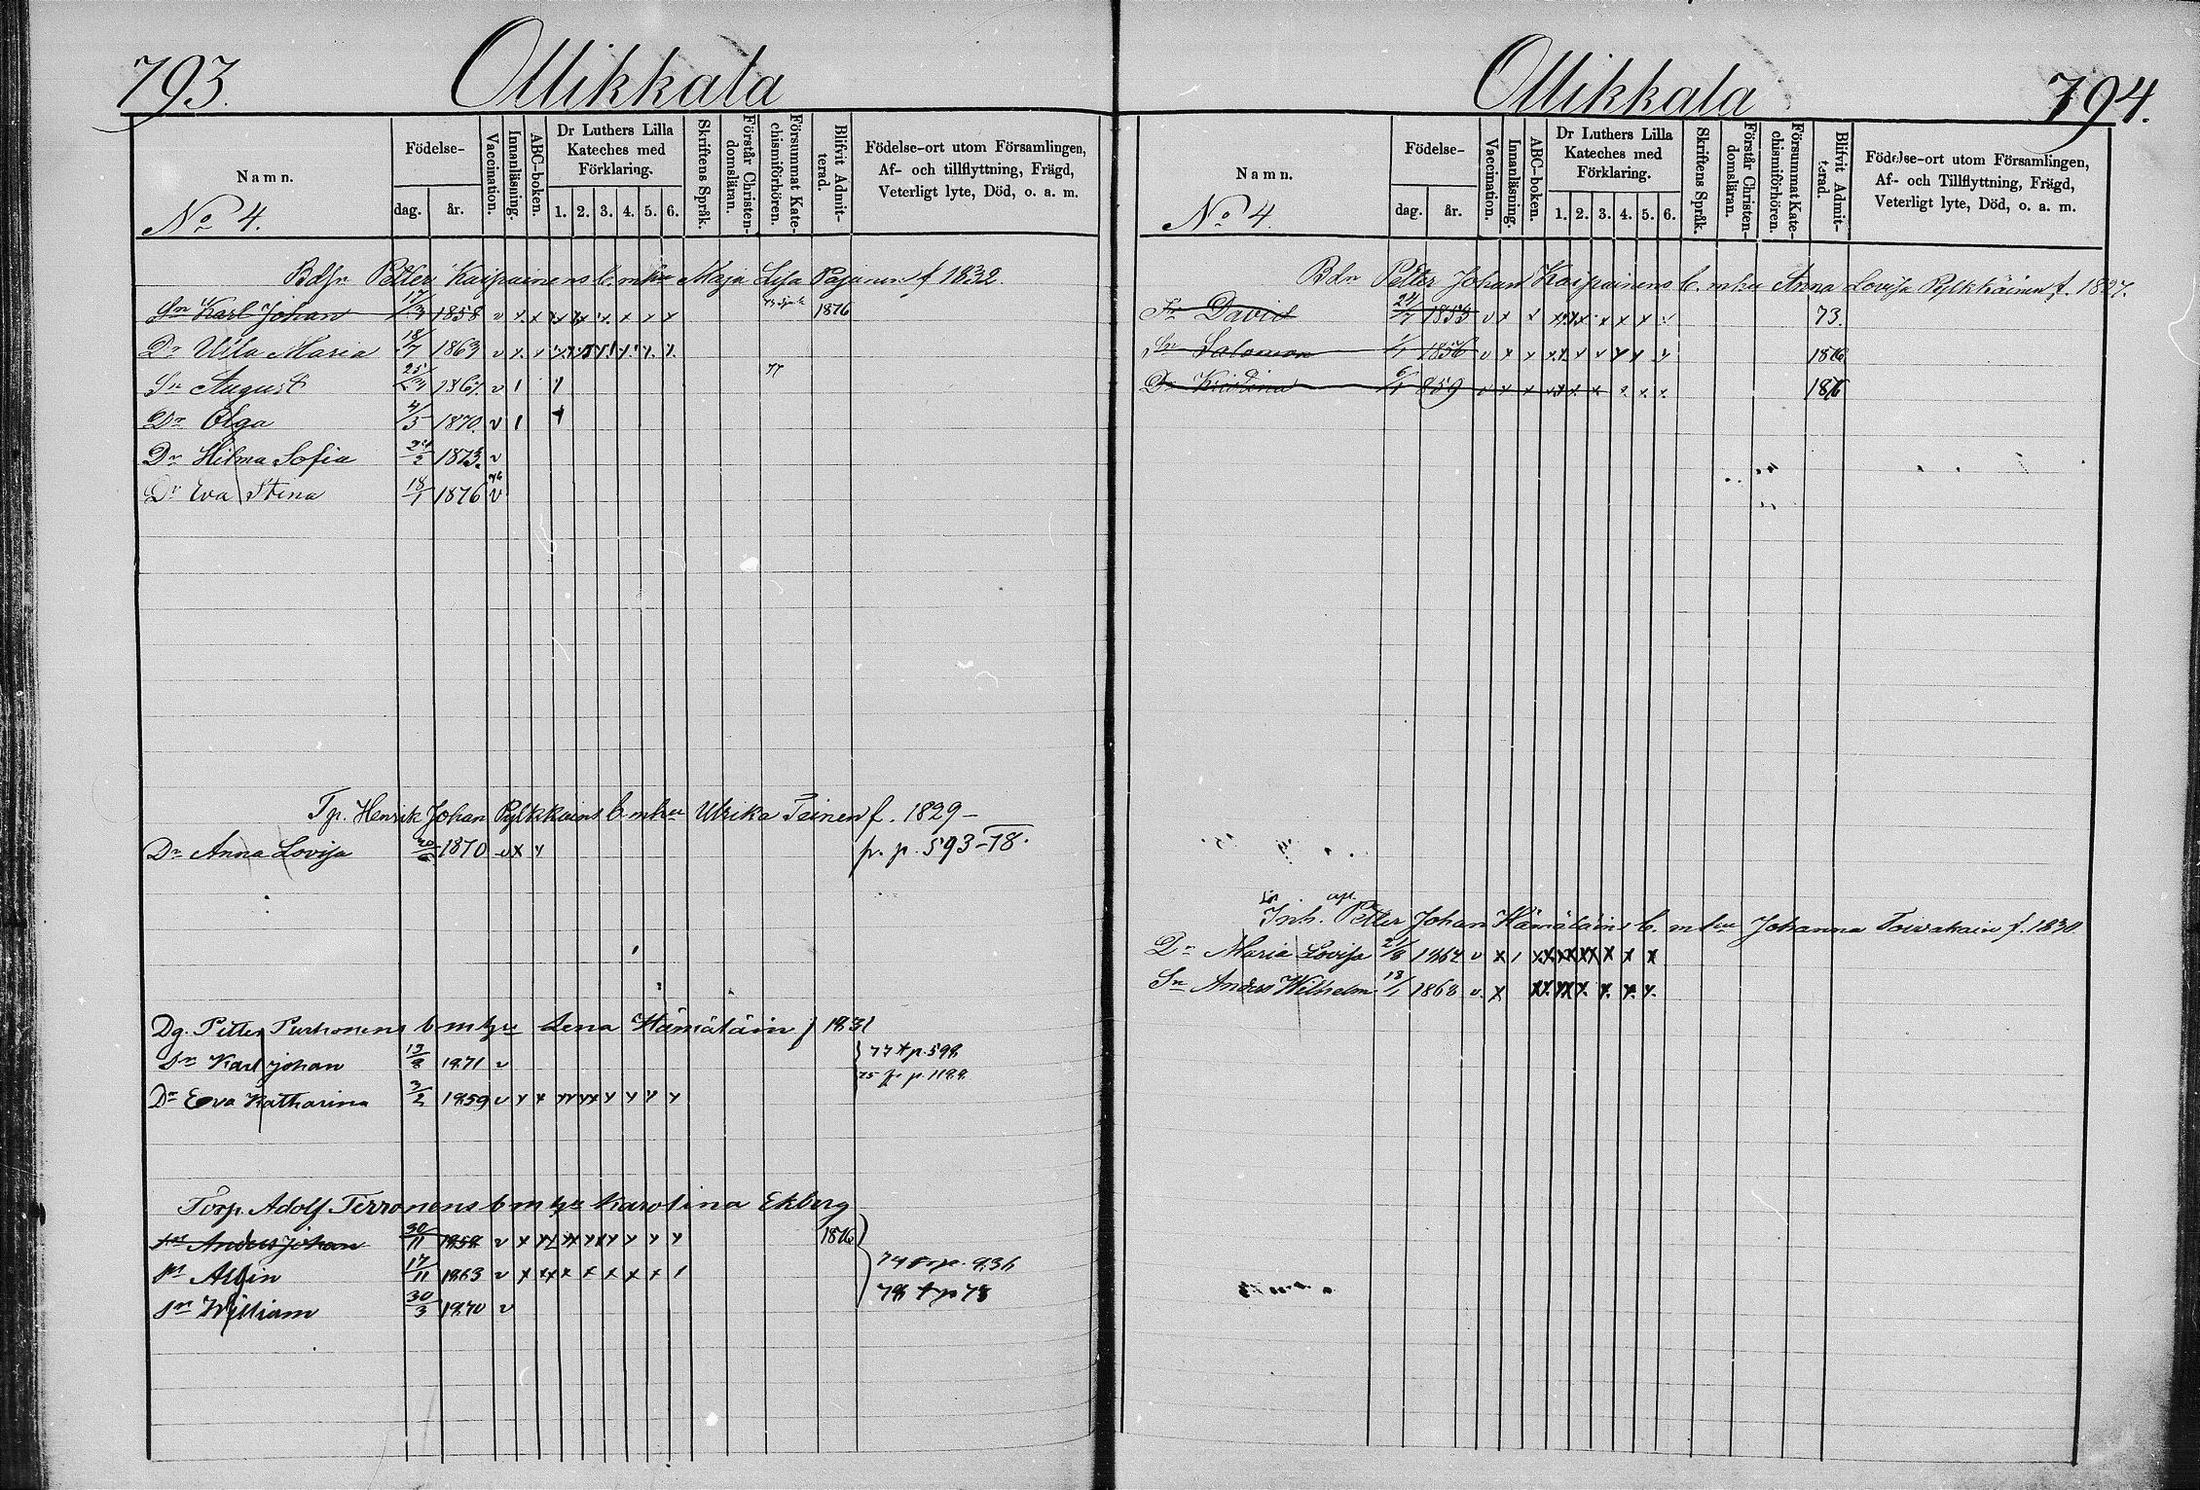 793.
Ollikkala
Namn.
No 4.
Födelse-
dag.
år.
Vaccination.
Innanläsning.
ABC-boken.
Dr Luthers Lilla
Kateches med
Förklaring.
1. 2. 3. 4. 5. 6.
Skriftens Språk.
Förstår Christen-
domsläran.
Försummat Kate-
chismiförhören.
Blifvit Admit-
terad.
Födelse-ort utom Församlingen,
Af- och tillflyttning, Frägd,
Veterligt lyte, Död, o. a. m.
Petter Kaipainens b. m hu Maja Lisa Pajunen f 1832.
Sn Karl Johan 17/3 1858 v x x x x x x x x 1876
Dr Ulla Maria 18/7 1863 v x x x x x x x x
77
Sn August 25/ 1867. v 1 1
Dr Olga 4/5 1870. v 1
Dr Hilma Sofia 2/2 1873. v
Dr Eva Stina 18/1 1876 v
Tp. Henrik Johan Pylkkäins b m hu Ulrika Teinen f. 1829
Dr Anna Lovisa 1870 v x x p. p. 593-78.
Dg. Petter Purhonens b m hu Lena Hämäläin f 1831
Sn Karl Johan 19/8 1871 v 77 t p. 598
75 fr p. 1188
Dr Eva Katharina 3/2 1859 v x x x x x x x x
Torp. Adolf Terronens b m hu Karolina Ekberg
Sn Anders Johan 30/11 1858 v x x x x x x x x 1876
Sn Albin 17/11 1863 v x x x x x x x 1 74 p. 836
78 t p 78
Sn William 30/3 1870 v
Ollikkala
794.
Namn.
No 4.
Födelse-
dag.
år.
Vaccination.
Innanläsning.
ABC-boken.
Dr Luthers Lilla
Kateches med
Förklaring.
1. 2. 3. 4. 5. 6.
Skriftens Språk.
Förstår Christen-
domsläran.
Försummat Kate-
chismiförhören.
Blifvit Admit-
terad.
Födelse-ort utom Församlingen,
Af- och Tillflyttning, Frägd,
Veterligt lyte, Död, o. a. m.
Bdn Petter Johan Kaipainens b. m hu Anna Lovisa Pylkkäinen f. 1827.
David 24/7 1853 v x x x x x x x x 73.
Sn Salomon 1/1 1856 v x x x x x x x x 1876
Dr Kristina 6/1 859 v x x x x x x x x 1876
Inh. Petter Johan Hämäläins b. m hu Johanna Toivakain f. 1830
Dr Maria Lovisa 21/8 1864 v x 1 x x x x x x
Sn Anders Wilhelm 18/1 1868 v. x x x x x x x